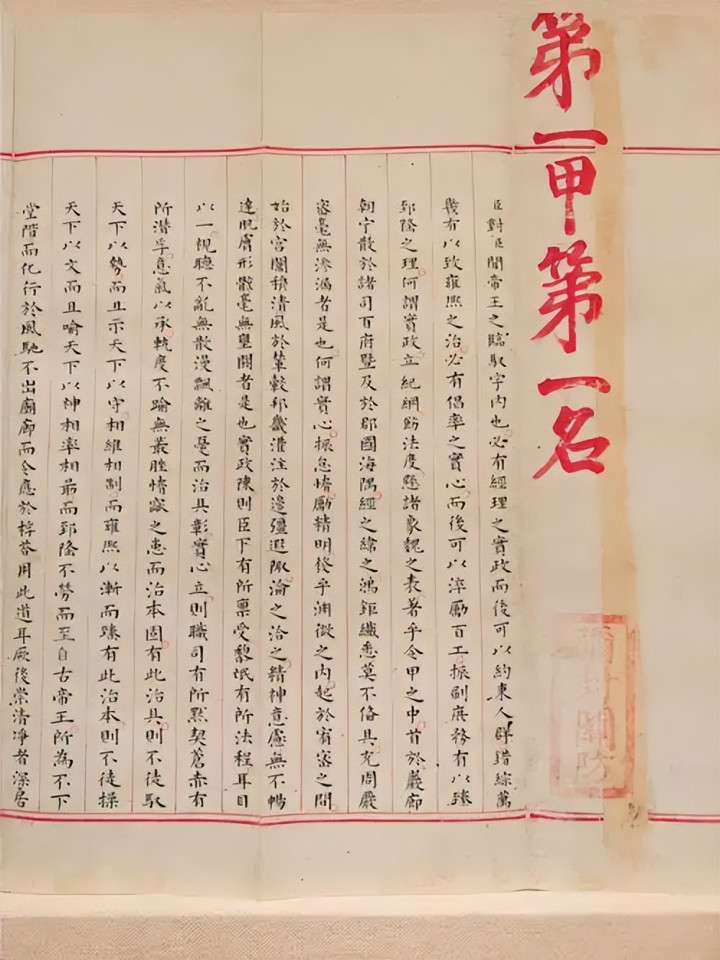 第一甲第一名
彌封關防
臣對臣聞帝王之臨馭宇內也必有經理之實政而後可以約束人群錯綜萬
幾有以致雍熙之治必有倡率之實心而後可以淬勵百工振刷庶務有以臻
郅隆之理何謂實政立紀綱飭法度懸諸象魏之表著乎令甲之中首於巖廊
朝宁散於諸司百府暨及於郡國海隅經之緯之鴻鉅纖悉莫不備具充周嚴
密毫無滲漏者是也何謂實心振怠惰勵精明發乎淵微之內起於宥密之間
始於宮闈穆清風於輦轂邦畿灌注於邊疆遐陬淪之洽之精神意慮無不暢
達肌膚形骸毫無壅閼者是也實政陳則臣下有所稟受黎氓有所法程耳目
以一視聽不亂無散漫飄離之憂而治具彰實心立則職司有所默契蒼赤有
所潛孚意氣以承軌度不踰無叢脞惰窳之患而治本固有此治具則不徒馭
天下以勢而且示天下以守相維相制而雍熙以漸而臻有此治本則不徒操
天下以文而且喻天下以神相率相勗而郅隆不勞而至自古帝王所為不下
堂階而化行於風馳不出廟廊而令應於桴答用此道耳厥後崇清淨者深居